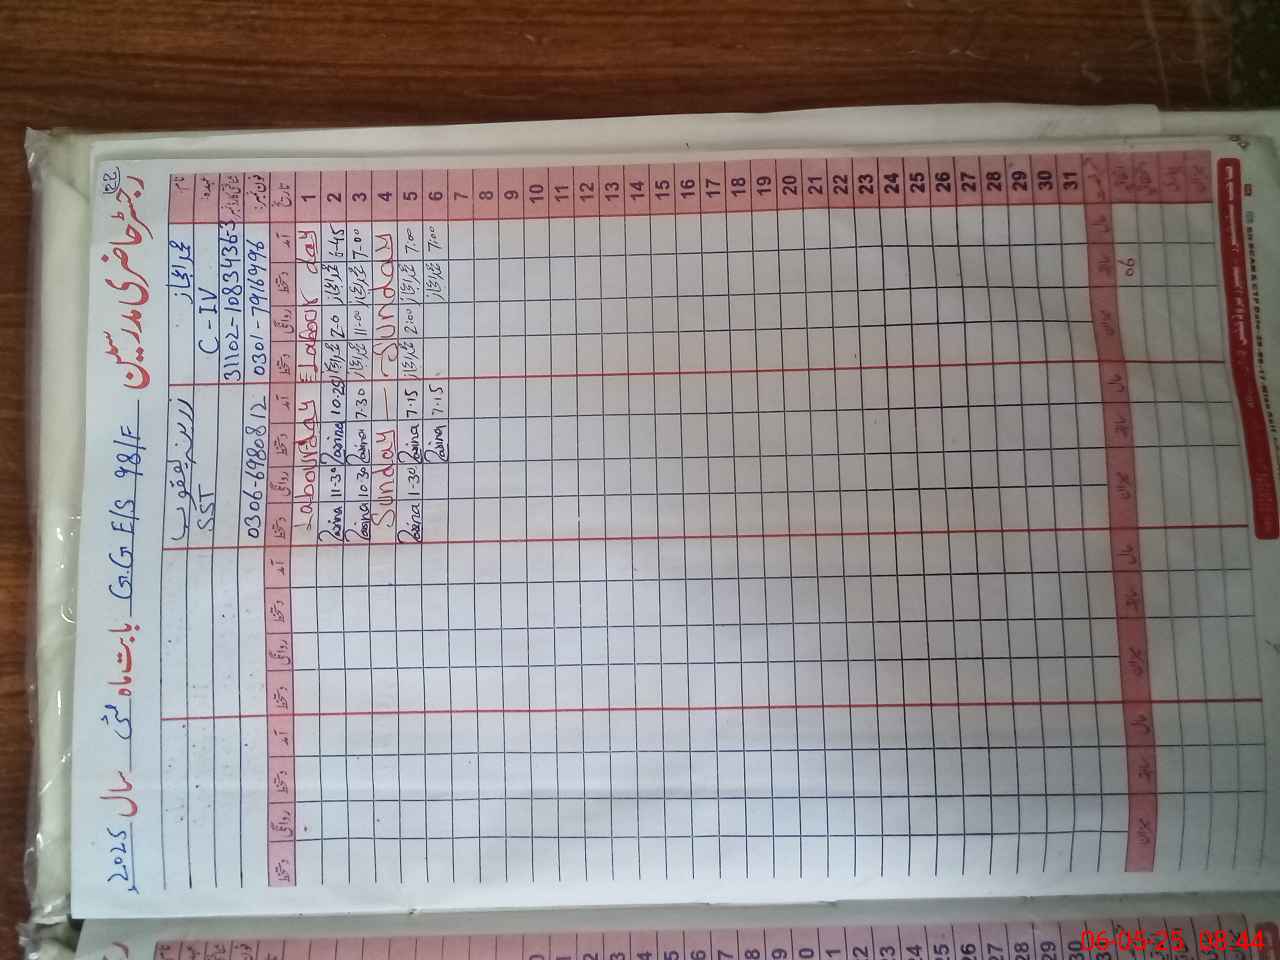 رجسٹر حاضری مدرسین G.G.E/S 98/F بابت ماہ مئی سال 2025ء
22
نام محمد اعجاز زرینہ یعقوب
عہدہ C-IV SST
شناختی کارڈ نمبر 31102-1083436-3
فون نمبر 0301-7916996 0306-6980812
تاریخ آمد دستخط روانگی دستخط آمد دستخط روانگی دستخط آمد دستخط روانگی دستخط آمد دستخط روانگی دستخط
1 Labour day Labour day
2 6-45 محمد اعجاز 2-0 محمد اعجاز 10.25 Zarina 11-30 Zarina
3 7-00 محمد اعجاز 11-00 محمد اعجاز 7.30 Zarina 10.30 Zarina
4 Sunday Sunday
5 7.00 محمد اعجاز 2:00 محمد اعجاز 7.15 Zarina 1-30 Zarina
6 7:00 محمد اعجاز 7.15 Zarina
7
8
9
10
11
12
13
14
15
16
17
18
19
20
21
22
23
24
25
26
27
28
29
30
31
حال سابقہ میزان حال سابقہ میزان حال سابقہ میزان حال سابقہ میزان
06
06-05-25 08:44